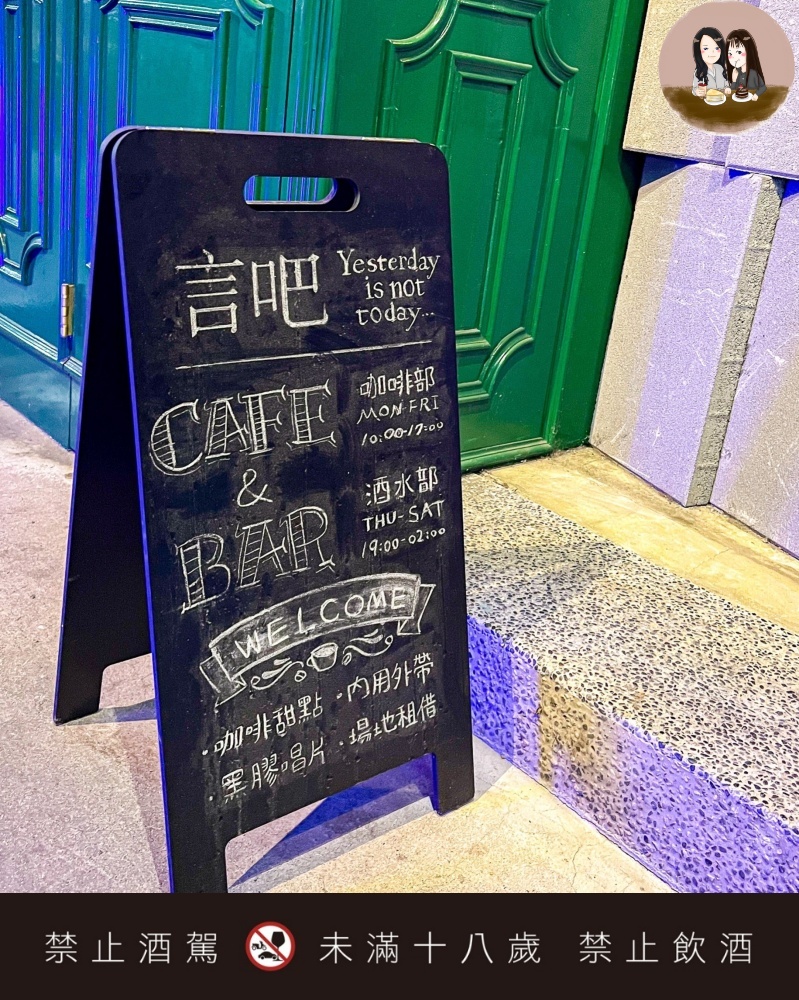 言吧
Yesterday
is not
today...
CAFE
&
BAR
咖啡部
MON-FRI
10:00-17:00
酒水部
THU-SAT
19:00-02:00
WELCOME
·咖啡甜點 ·內用外帶
·黑膠唱片 ·場地租借
禁止酒駕 未滿十八歲 禁止飲酒